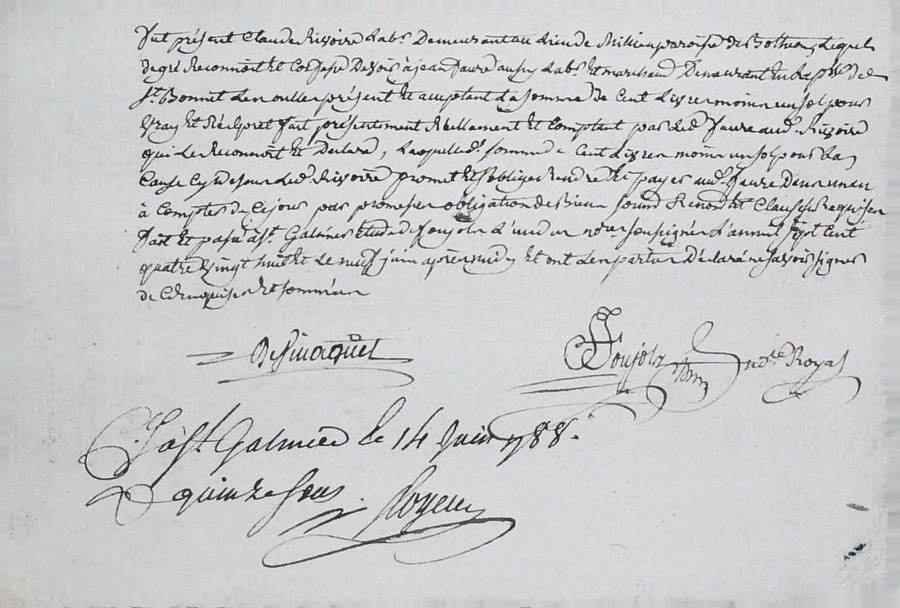 fut présent Claude Rivoire lab.r demeurant au lieu de Millieu paroisse de Bothéon, lequel
de gré Reconnoit et Confesse devoir à jean faure aussy lab.r et marchand demeurant en la p.sse de
S.t Bonnet Les oulles présent et acceptant La somme de Cent Livres moins un sol pour
vray et prêt fait présentement Réellement et Comptant par led. faure aud. Rivoire
qui Le Reconnoit et Declare, Laquelle d. somme de Cent Livres moins un sol pour La
Cause Cy dessus led. Rivoire promet et s'oblige rendre et payer aud. faure dans un an
à Compter de Ce jour par promesse obligation de Biens soumis Renon et Clauses Requises
fait et passé à S.t Galmier étude de foujols L'un des no.res soussignés L'an mil sept Cent
quatre vingt huit et Le neuf juin après midy et ont Les parties Déclaré ne savoir signer
de Ce Enquises et sommées
foujols no.re Royal
C. à S.t Galmier le 14 Juin 1788.
R quinze sous.